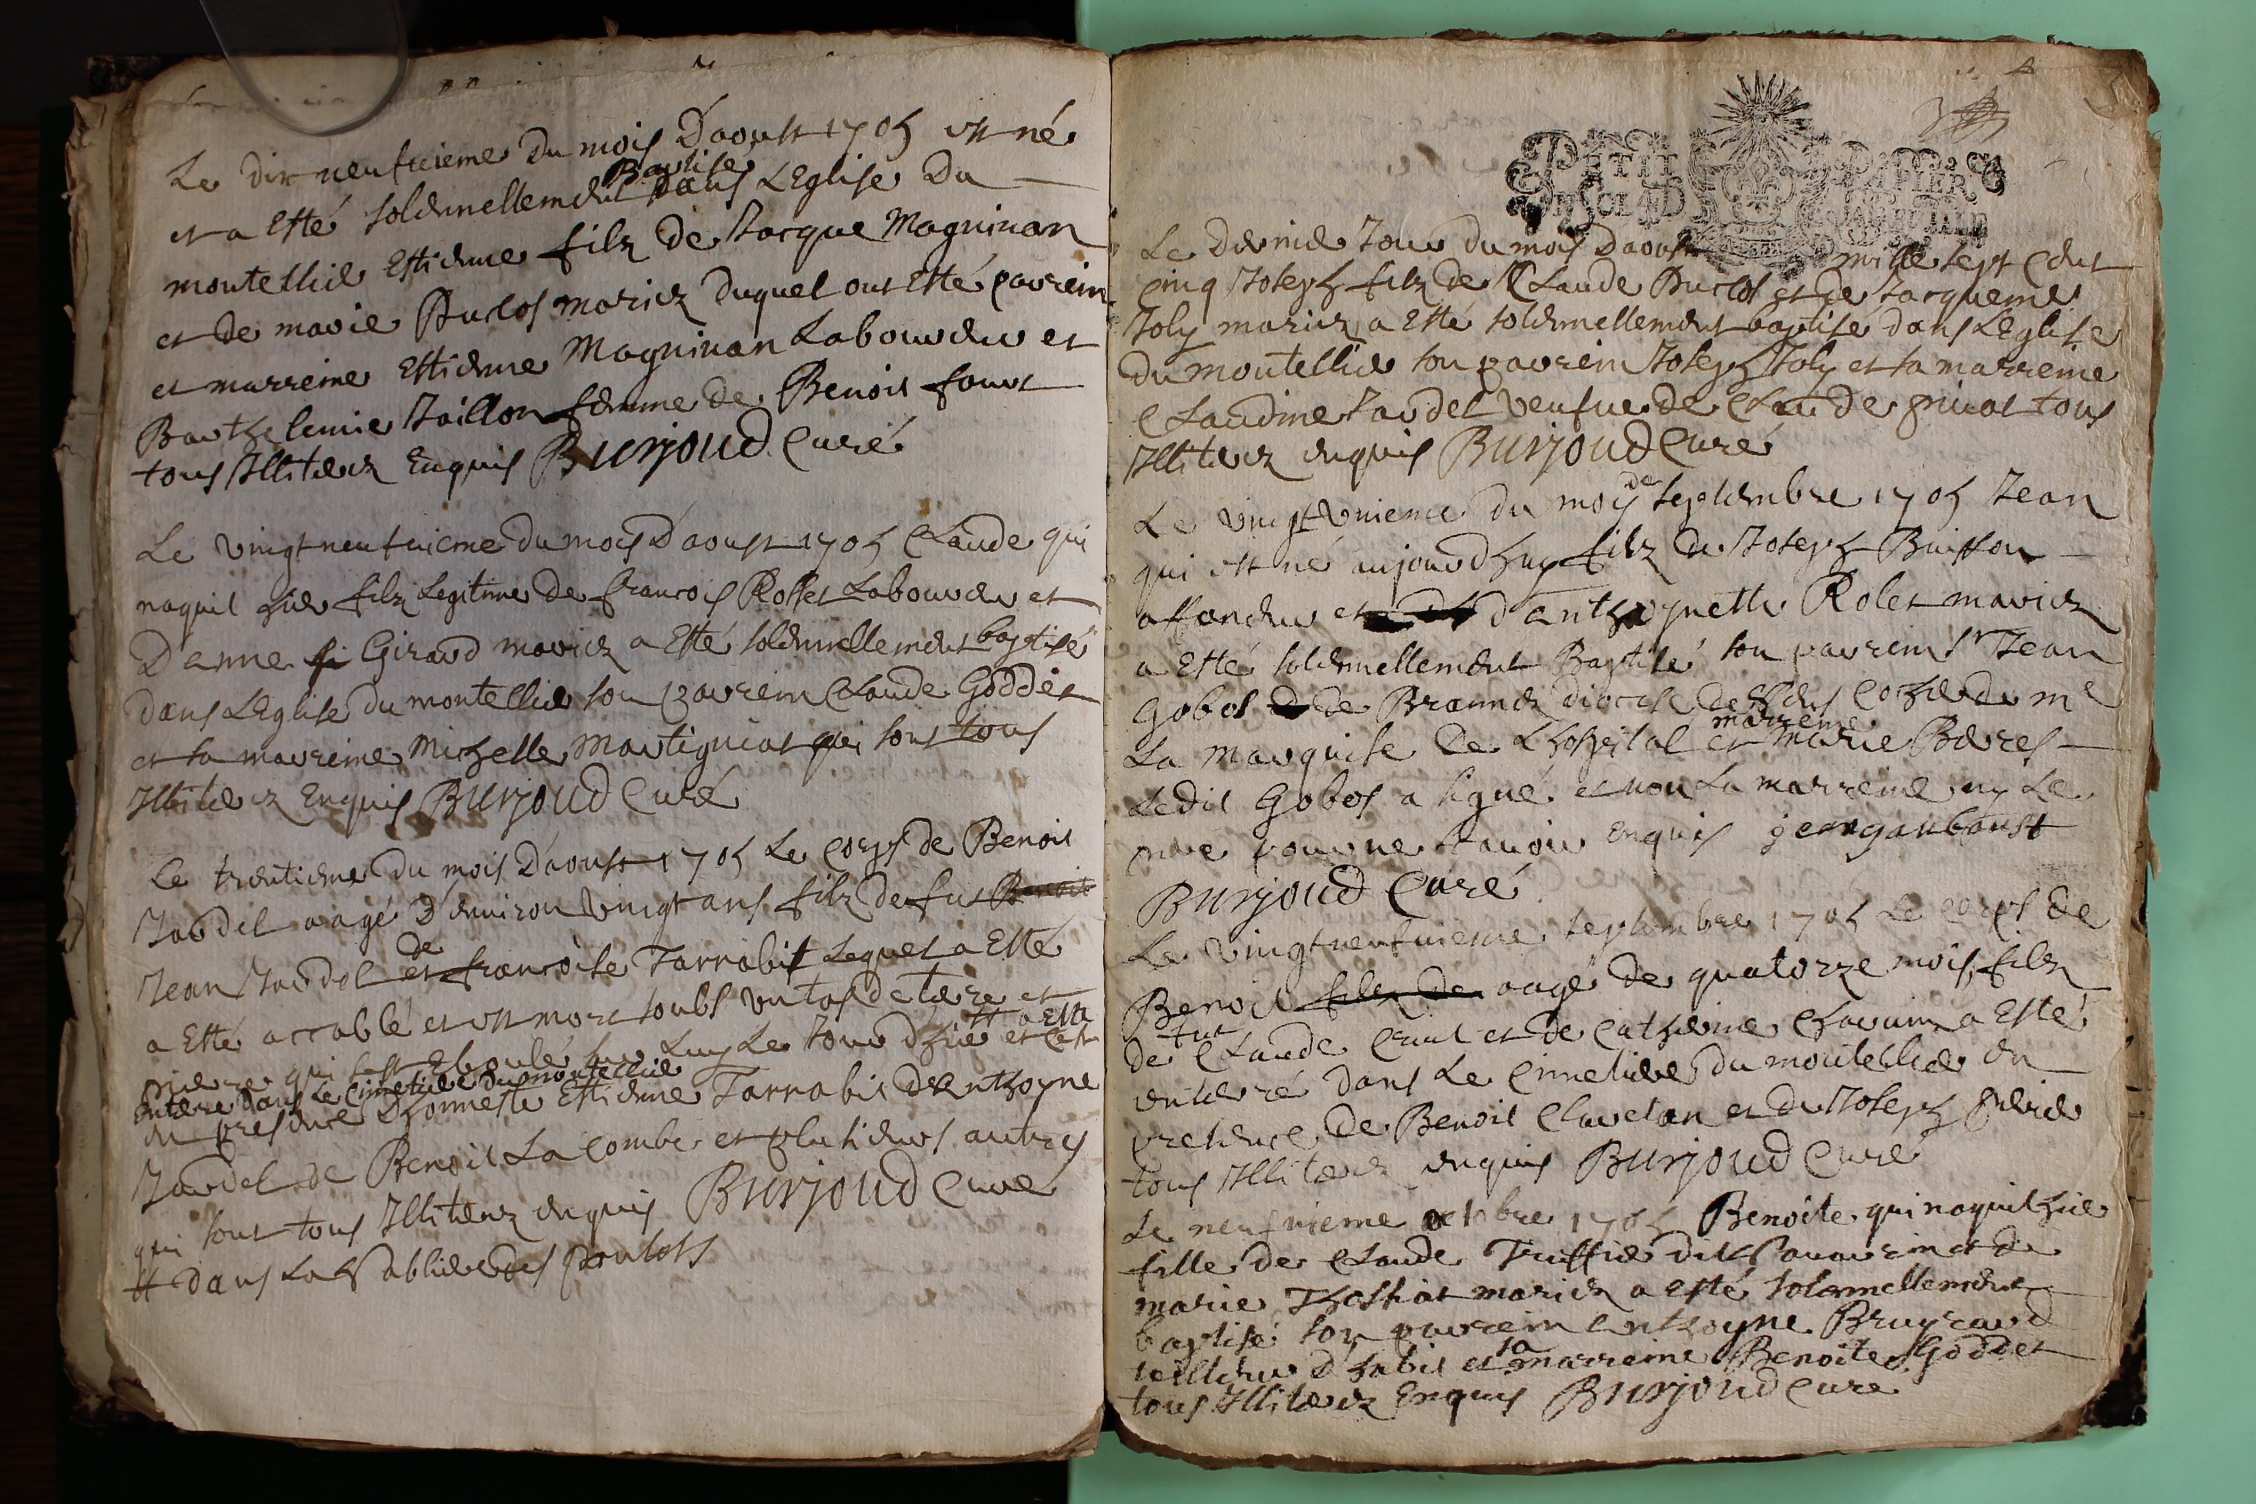 Le dix neufvieme du mois D'aoust 1705 est né
et a Esté solemnellement Baptise dans L'Eglise Du
montellier Estienne filz de Jacque Magninan
et de marie Duclos mariez duquel ont Esté parrein
et marreine Estienne Magninan Laboureur et
Barthelemie Jaillon femme de Benoit
tous Illiterez Enquis Burjoud Curé
Le vingt neufvieme du mois D'aoust 1705 Claude qui
naquit hier filz Legitime de francois Rollet Laboureur et
D'anne Giraud mariez a Esté solemnellement baptisé
dans L'Eglise du montellier son parrein Claude Goddet
et sa marreine Michelle Martignat qui sont tous
Illiterez Enquis Burjoud Curé
Le trentieme du mois D'aoust 1705 Le corps de Benoit
Jardel aagé D'environ vingt ans filz de fut Benoit
Jean Jardel et de francoise Tarrabit Lequel a Esté
a Esté accablé et est mort soubs un tas de terre et
pierre qui s'est Eboulé sur Luy Le jour D'hier # et a Esté
Enterré dans Le Cimetiere du montellier
en presence D'honneste Estienne Tarrabit D'Enthoyne
Jardel de Benoit La Combe et plusieurs autres
qui sont tous Illiterez enquis Burjoud Curé
# dans La Sabliere des
PETIT PAPIER
Le dernier Jour du mois D'aoust mille sept cent
cinq Joseph filz de Claude Duclos et de Jacqueme
Joly mariez a Esté solemnellement baptisé dans L'Eglise
du montellier son parrein Joseph Joly et sa marreine
Claudine Jardel veufve de Claude tous
Illiterez enquis Burjoud Curé
Le vingt unieme du moy de septembre 1705 Jean
qui est né aujourdhuy filz de Joseph Buisson
et d'anthoynette Rolet mariez
a Esté solemnellement Baptisé son parrein Sr Jean
Gobos de diocese de cocher de me
La marquise de L'hospital et marreine marie
Ledit Gobos a signé et non La marreine ny Le
pere pour ne scavoir Enquis
Burjoud Curé
Le vingt neufvieme septembre 1705 Le corps de
Benoit filz de aagé de quatorze mois filz
de fut Claude et de Catherine a Esté
enterré dans Le Cimetiere du montellier en
presence de Benoit Clavelan et de Joseph
tous Illiterez enquis Burjoud Curé
Le neufvieme octobre 1705 Benoite qui naquit hier
fille de Claude Truffier dit et de
marie mariez a Esté solemnellement
baptisé son parrein Enthoyne Bruyraud
tellieur d'habit et sa marreine Benoite Goddet
tous Illiterez Enquis Burjoud Curé